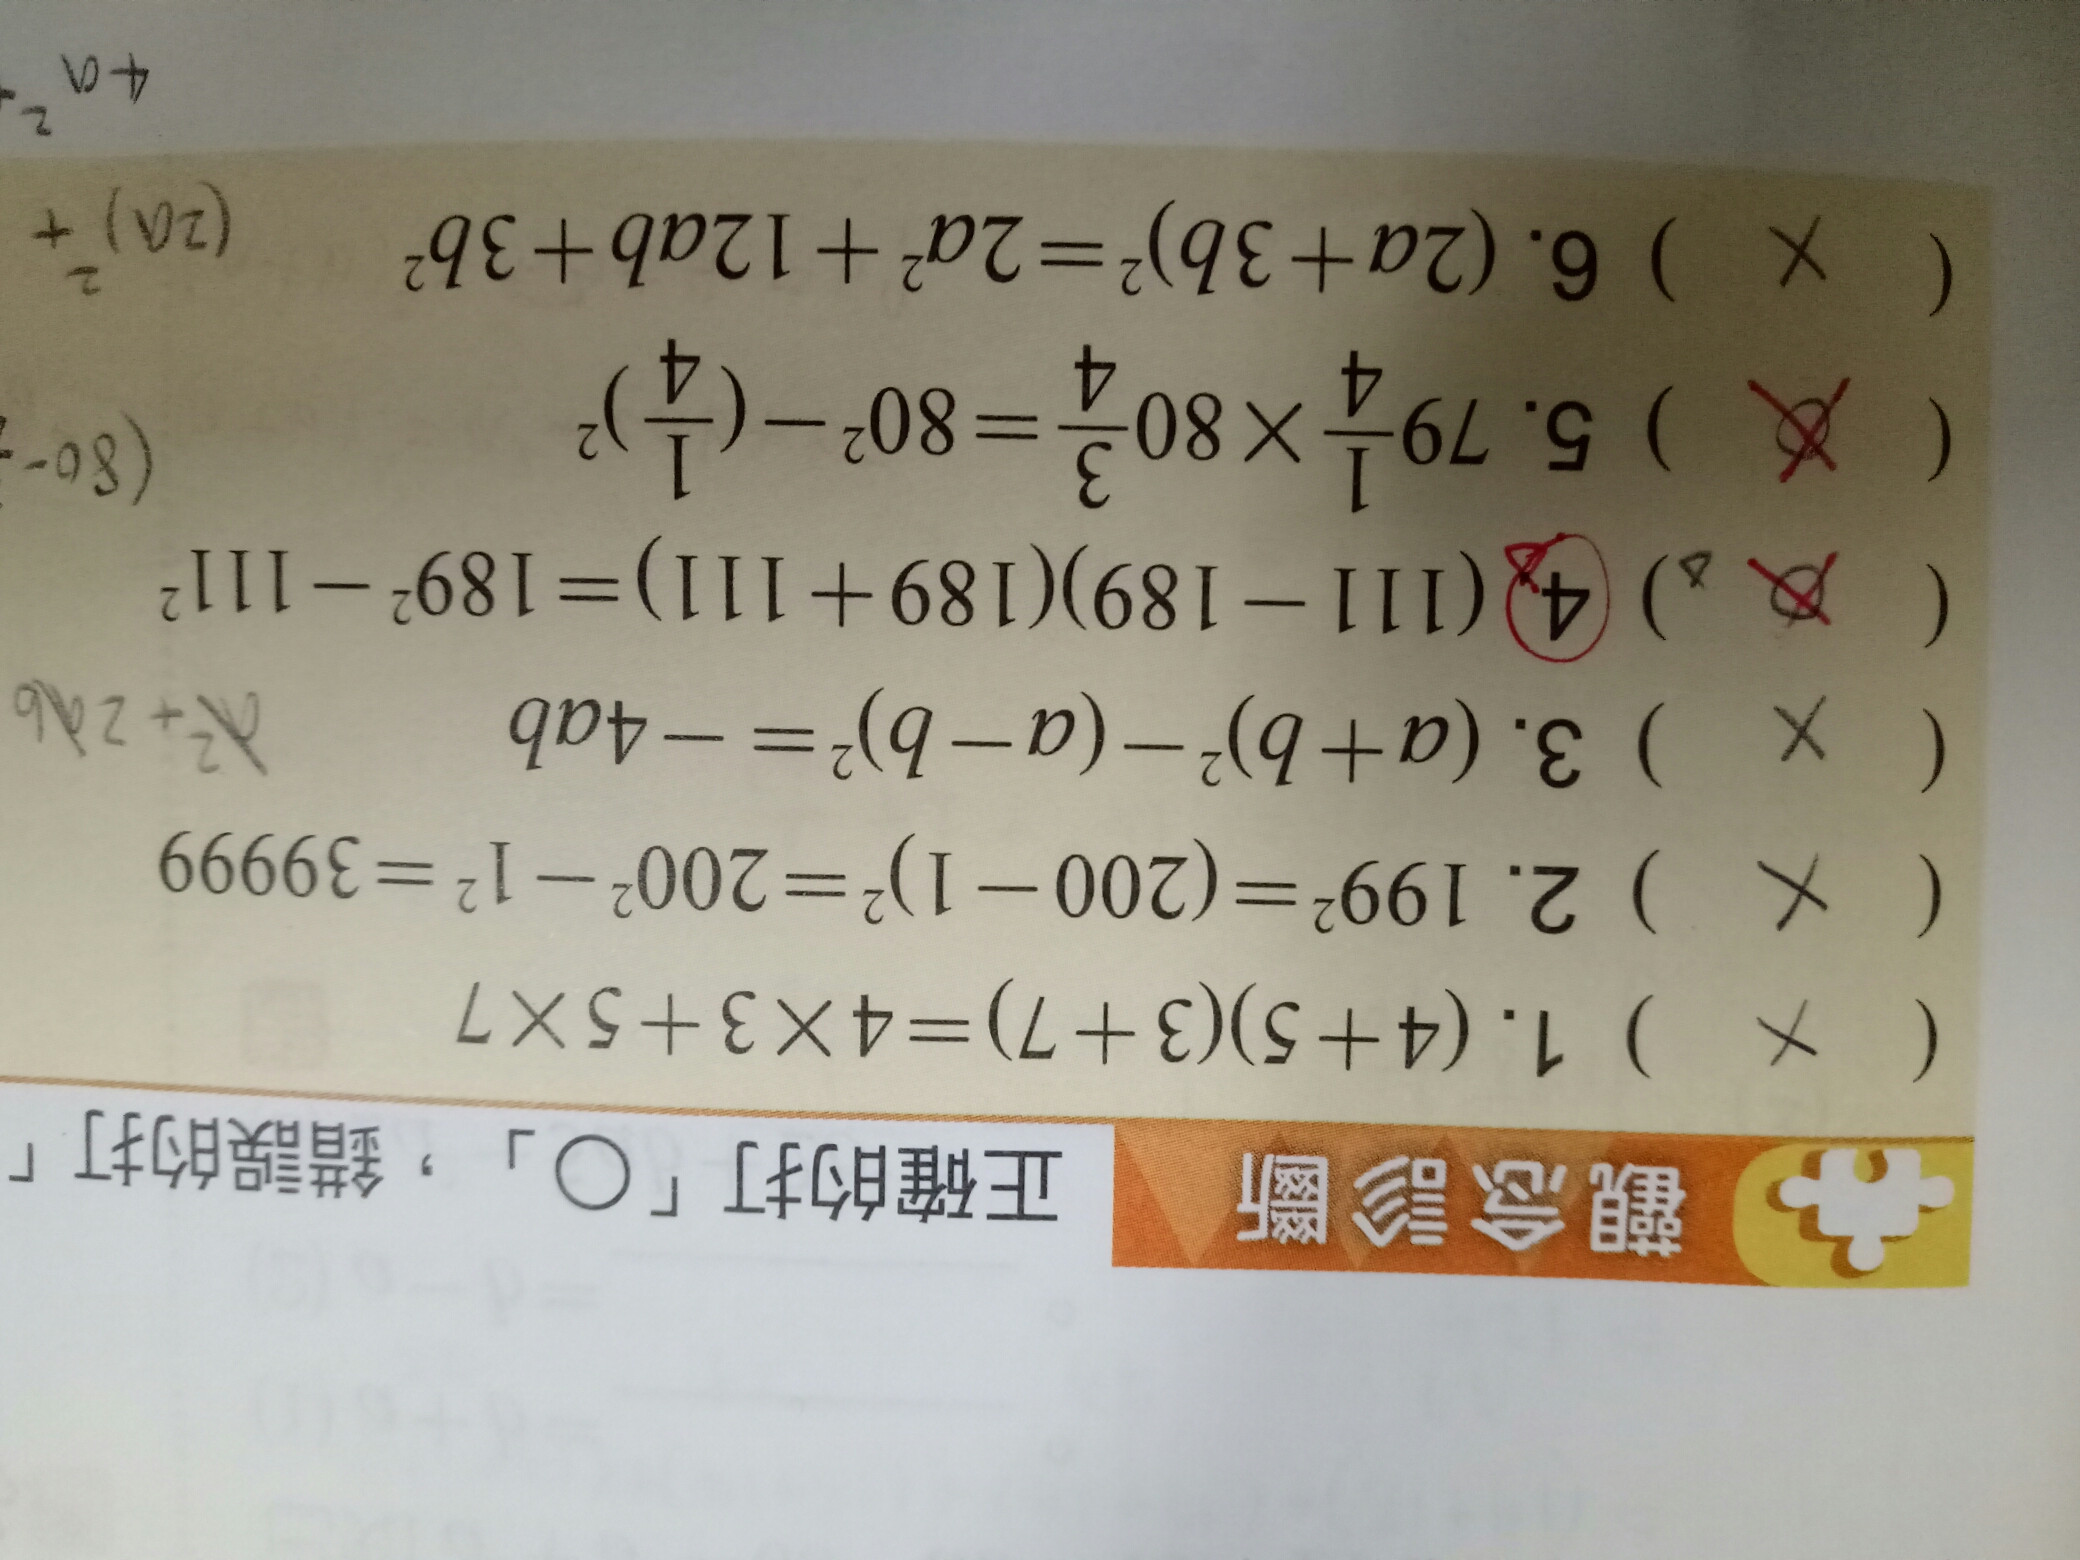 觀念診斷 正確的打「○」，錯誤的打「
( × ) 1. (4+5)(3+7)=4×3+5×7
( × ) 2. 199²=(200-1)²=200²-1²=39999
( × ) 3. (a+b)²-(a-b)²=-4ab
a²+2ab
( ) 4. (111-189)(189+111)=189²-111²
( ) 5. 79 1/4×80 3/4=80²-(1/4)²
(80-
( × ) 6. (2a+3b)²=2a²+12ab+3b²
(2a)²+
4a²+